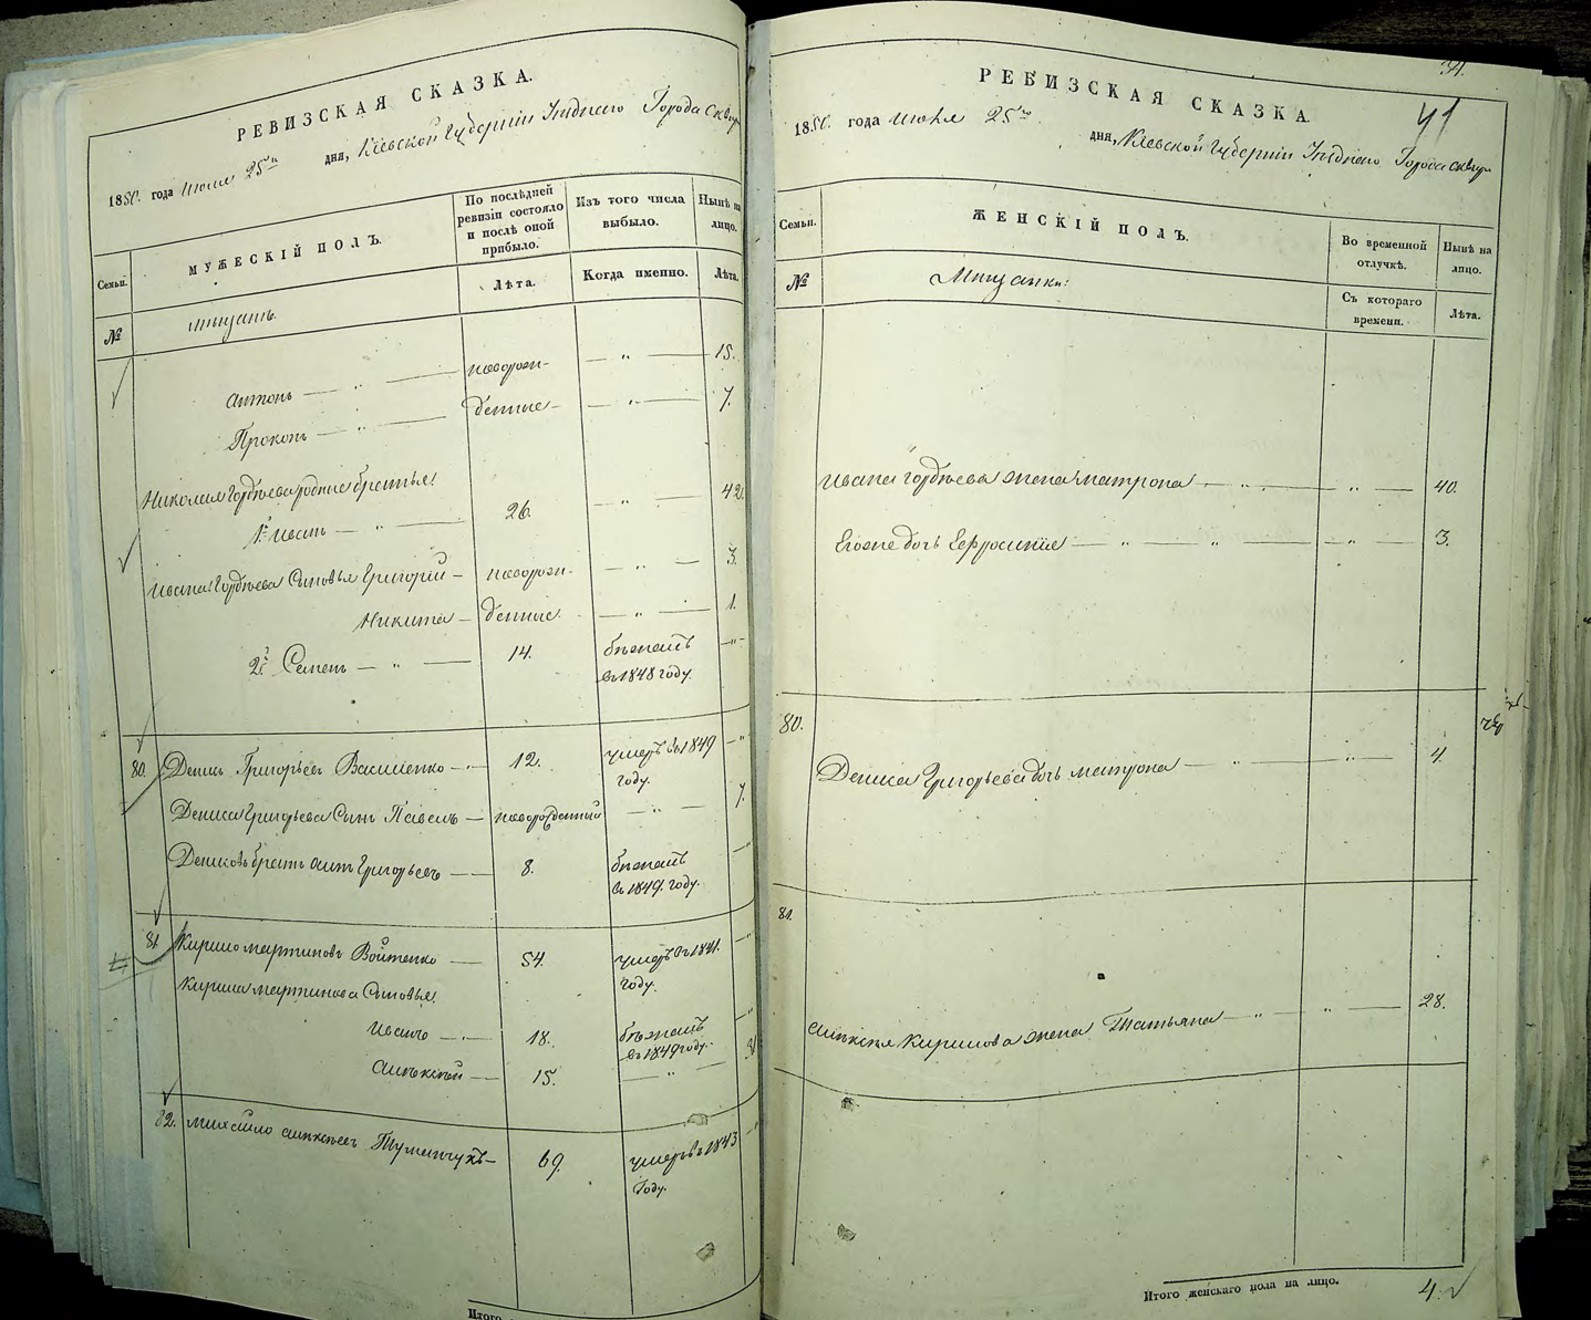 РЕВИЗСКАЯ СКАЗКА.
1850. года июля 25го дня, Кіевской Губерніи Уѣднаго Города Сквиры
Семьи.
МУЖЕСКІЙ ПОЛЪ.
По послѣдней ревизіи состояло и послѣ оной прибыло.
Изъ того числа выбыло.
Нынѣ на лицо.
№
мѣщанъ.
Лѣта.
Когда именно.
Лѣта.
Антонъ — " — новорож- — " — 15.
Прокопъ — " — денные — — " — 7.
Николая Гордѣева родные братья:
1й Иванъ — " — 26. — " — 42.
Ивана Гордѣева Сыновья Григорій — новорож- — " — 3.
Никита — денные. — " — 1.
2й Семенъ — " — 14. бѣжалъ въ 1848 году. — " —
80. Денис Григорьевъ Василенко — 12. умеръ въ 1849 году. — "
Дениса Григорьева Сынъ Павелъ — новорожденный — " — 7.
Денисовъ братъ Григорьевъ — 8. бѣжалъ в 1849. году. — "
81 Кирило Мартиновъ Войтенко — 54. умеръ въ 1841. году. — "
Кирила Мартинова Сыновья:
Иванъ — 18. бѣжалъ въ 1849 году. — "
Алексѣй — 15. — " —
82. Михайло Алексѣевъ Туманчукъ — 69. умеръ въ 1843 году. — "
Итого
34.
41
РЕВИЗСКАЯ СКАЗКА.
1850. года июля 25го дня, Кіевской Губерніи Уѣднаго Города Сквиры
Семьи.
ЖЕНСКІЙ ПОЛЪ.
Во временной отлучкѣ.
Нынѣ на лицо.
№
Мѣщанки:
Съ котораго времени.
Лѣта.
Ивана Гордѣева жена Матрона — " — " — 40.
Его же дочь Ефросинія — " — " — " — 3.
80.
Дениса Григорьева дочь Матрона — " — " — 4.
81.
Алексѣя Кирилова жена Татьяна — " — " — 28.
Итого женскаго пола на лицо. 4.